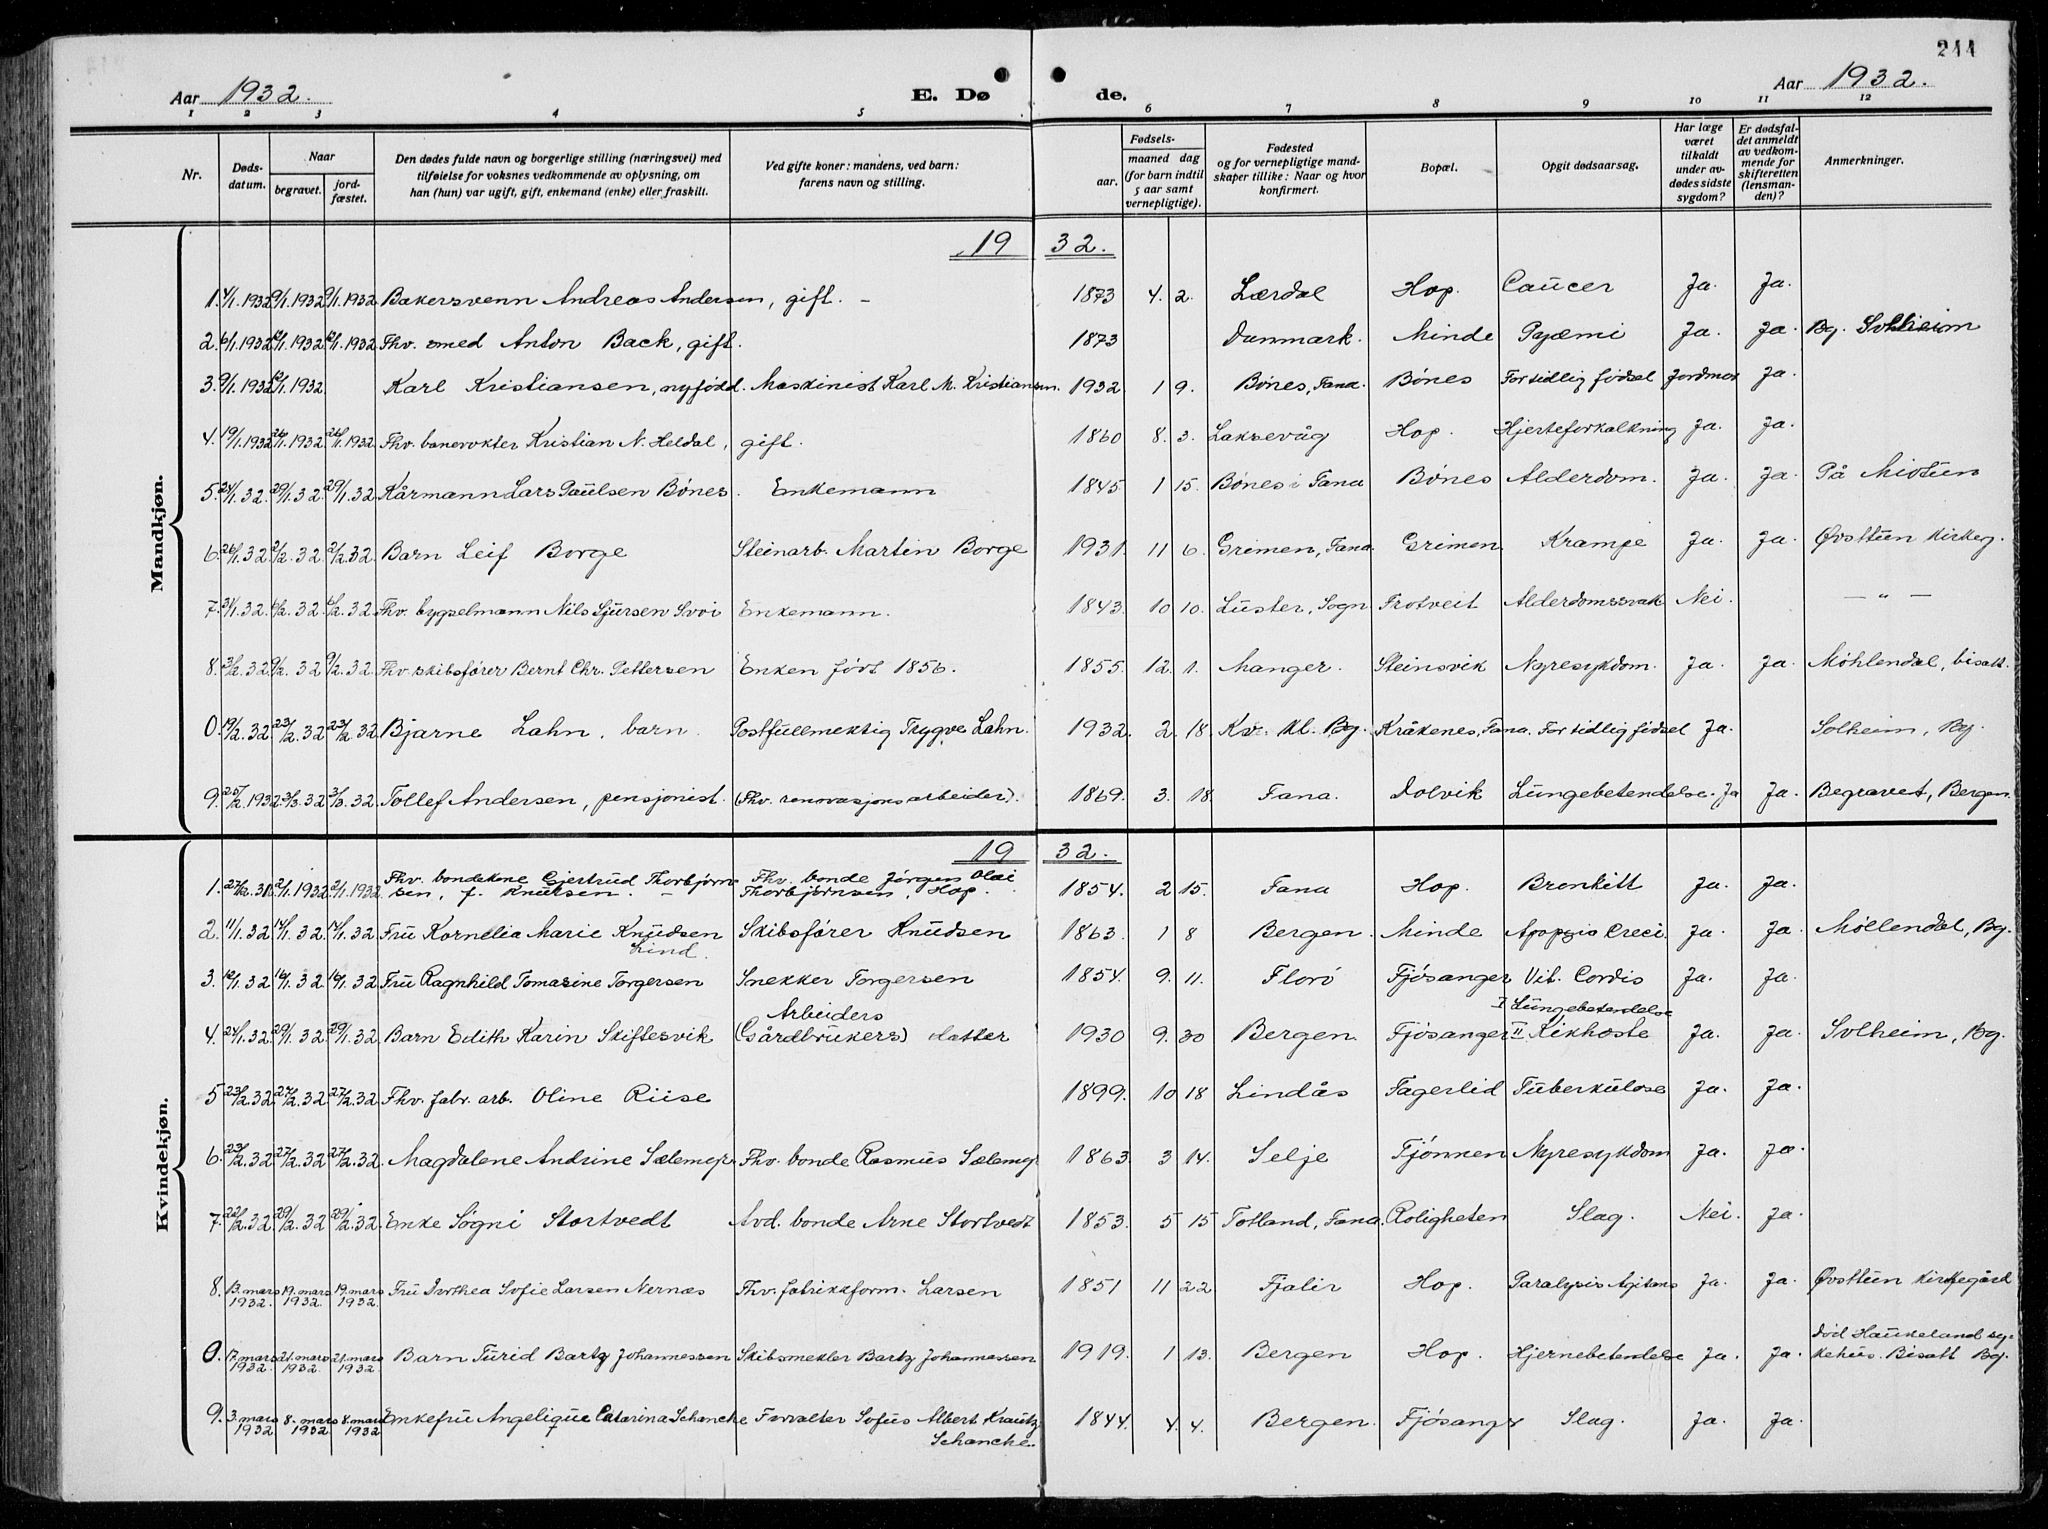 244
Aar 1932. E. Dø de. Aar 1932.
1 2 3 4 5 6 7 8 9 10 11 12
Nr. Døds-datum. Naar begravet. jord-fæstet. Den dødes fulde navn og borgerlige stilling (næringsvei) med tilføielse for voksnes vedkommende av oplysning, om han (hun) var ugift, gift, enkemand (enke) eller fraskilt. Ved gifte koner: mandens, ved barn: farens navn og stilling. Fødsels- aar. maaned dag (for barn indtil 5 aar samt vernepligtige). Fødested og for vernepligtige mandskaper tillike: Naar og hvor konfirmert. Bopæl. Opgit dødsaarsag. Har læge været tilkaldt under avdødes sidste sygdom? Er dødsfaldet anmeldt av vedkommende for skifteretten (lensmanden)? Anmerkninger.
Mandkjøn.
19 32.
1. 4/1.1932 9/1.1932 9/1.1932 Bakersvenn Andreas Andersen, gift. – 1873 4. 2. Lærdal Hop. Caucer Ja. Ja.
2. 6/1.1932 12/1.1932 12/1.1932 Fhv. smed Anton Back, gift. 1873 Danmark. Minde Pyæmi Ja. Ja. Bg. Solheim
3. 9/1.1932 12/1.1932 Karl Kristiansen, nyfødd. Maskinist Karl M. Kristiansen. 1932 1 9. Bønes, Fana. Bønes For tidlig fødsel Jordmor Ja.
4. 19/1.1932 26/1.1932 26/1.1932 Fhv. banevokter Kristian N. Heldal, gift. 1860 8. 3. Laksevåg Hop. Hjerteforkalkning Ja. Ja.
5. 24/1.32 29/1.32. 29/1.32 Kårmann Lars Paulsen Bønes. Enkemann 1845 1 15. Bønes i Fana Bønes Alderdom. Ja. Ja. På Midtun
6. 26/1.32 2/2.32 2/2.32 Barn Leif Borge Steinarb. Martin Borge 1931. 11 6. Grimen, Fana. Grimen. Krampe Ja. Ja. Øvsttun kirkeg.
7. 31/1.32. 6/2.32 6/2.32 Fhv. bygselmann Nils Sjursen Svoi Enkemann. 1843. 10 10. Luster, Sogn Trotveit Alderdomssvak Nei. – " –
8. 3/2.32 9/2.32 9/2.32 Fhv. skibsfører Bernt Chr. Pettersen Enken født 1856. 1855. 12. 1. Manger. Steinsvik Nyresykdom. Ja. Ja. Møhlendal, bisatt.
0. 19/2.32. 23/2.32 23/2.32 Bjarne Lahn, barn. Postfullmektig Trygve Lahn. 1932. 2. 18. Kv. kl. Bg. Kråkenes, Fana. For tidlig fødsel Ja. Solheim, Bg.
9. 25/2.1932. 3/3.32 3/3.32 Tollef Andersen, pensjonist. (Fhv. renovasjonsarbeider). 1869. 3. 18. Fana. Dolvik Lungebetendelse. Ja Ja. Begravet, Bergen.
Kvindekjøn.
19 32.
1. 27/12.31 2/1.1932 2/1.1932 Fhv. bondekone Gjertrud Thorbjørnsen, f. Knutsen. – Fhv. bonde Jørgen Olai Thorbjørnsen, Hop. 1854. 2 15. Fana Hop. Bronkitt Ja. Ja.
2. 11/1.32 14/1.32 14/1.32 Fru Kornelia Marie Knudsen Lind. Skibsfører Knudsen 1863. 1 8 Bergen. Minde Ja. Ja. Møllendal, Bg.
3. 12/1.32 16/1.32 16/1.32 Fru Ragnhild Tomasine Torgersen Snekker Torgersen 1854. 9. 11. Florø Fjøsanger Vit. Cordis Ja. Ja.
4. 24/1.32 29/1.32 29/1.32 Barn Edith Karin Skiftesvik Arbeiders (Gårdbrukers) datter 1930 9. 30 Bergen Fjøsanger I Lungebetendelse II Kikhoste Ja. Ja. Solheim, Bg.
5 23/2.32 27/2.32 27/2.32 Fhv. fabr. arb. Oline Riise 1899. 10 18 Lindås Fagerlid Tuberkulose Ja. Ja.
6. 23/2.32 27/2.32 27/2.32. Magdalene Andrine Sælemyr Fhv. bonde Rasmus Sælemyr 1863. 3 14. Selje Fjønnen Nyresykdom Ja. Ja.
7. 22/2.32 29/2.32 29/2.32 Enke Søgni Stortvedt Avd. bonde Arne Stortvedt 1853. 5 15 Totland, Fana. Roligheten Slag. Nei. Ja.
8. 13. mars 1932. 19. mars 1932. 19. mars 1932. Fru Dorthea Sofie Larsen Nernæs Fhv. fabrikkform. Larsen 1851 11 22 Fjalir Hop. Paralysis Agitans Ja. Ja. Øvsttun kirkegård
0. 17. mars 1932. 21. mars 1932 21. mars 1932 Barn Turid Bartz Johannessen Skibsmekler Bartz Johannessen 1919. 1 13. Bergen Hop. Hjernebetendelse Ja. Ja. Død Haukeland sykehus. Bisatt Bg.
9. 3. mars 1932 8. mars 1932 8. mars 1932 Enkefru Angelique Catarina Schancke Forvalter Sofus Albert Krautz Schancke. 1844. 4. 4. Bergen. Fjøsanger Slag. Ja. Ja.